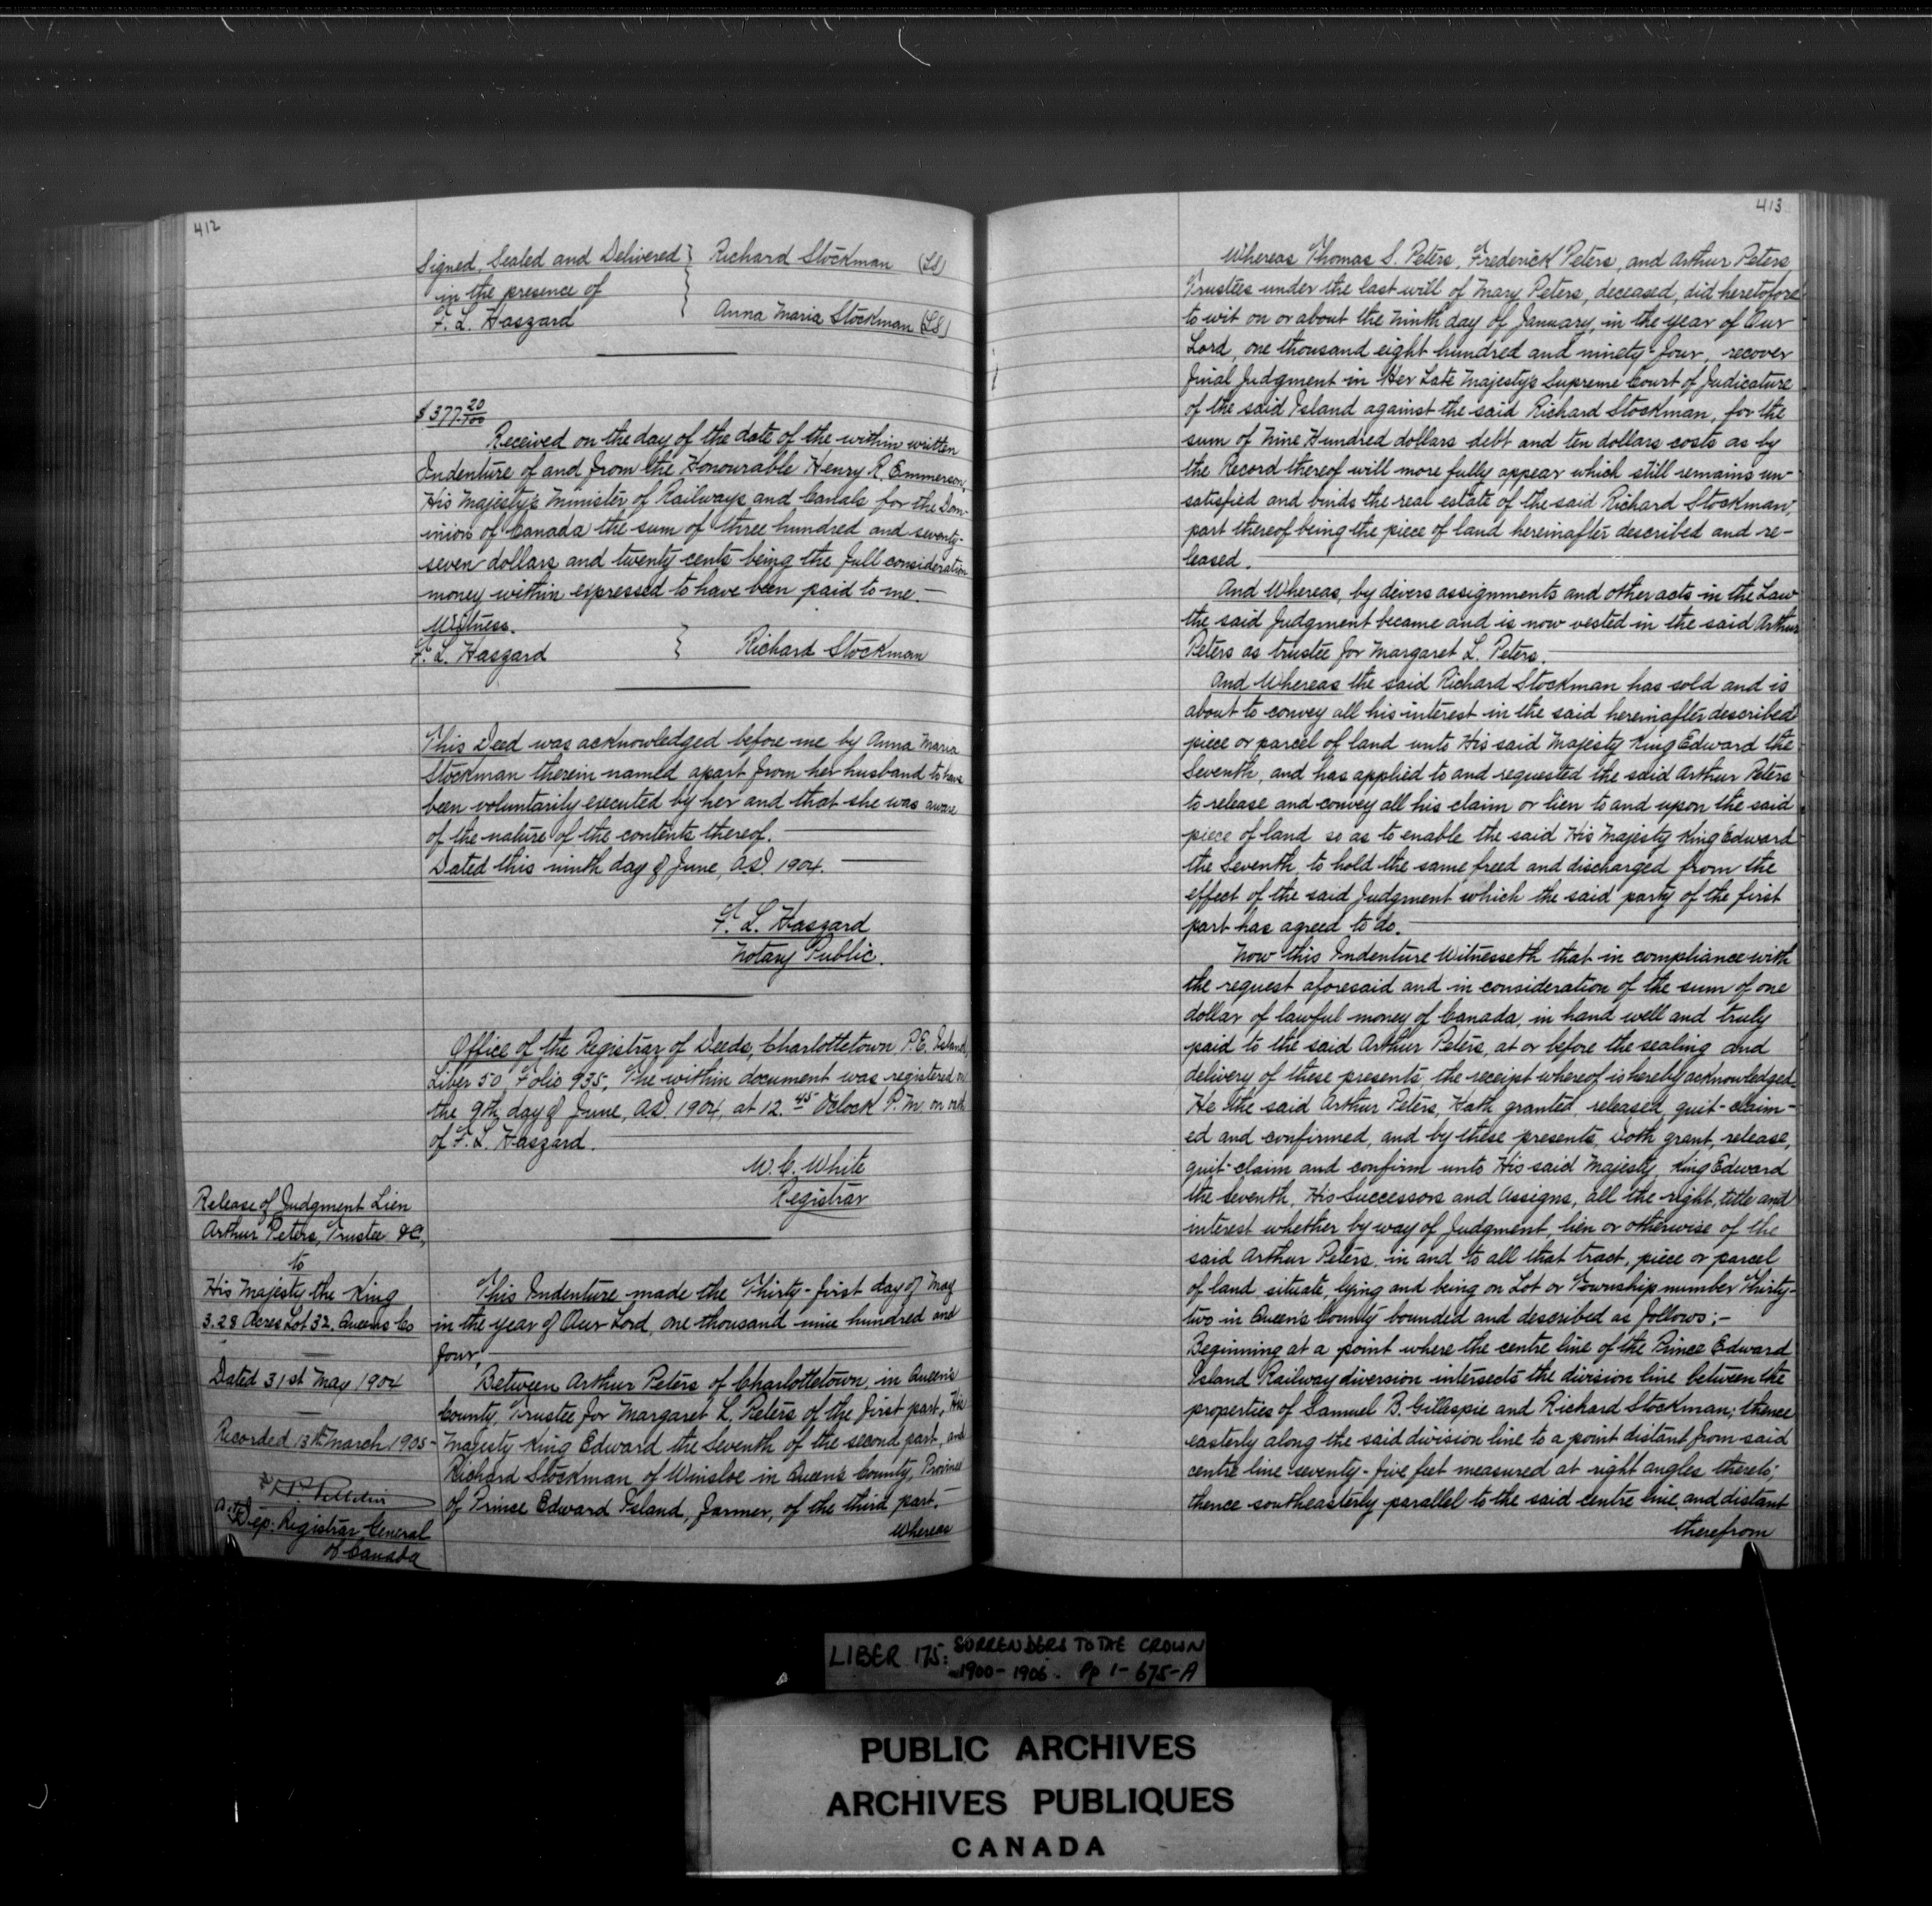 412
Signed, Sealed and Delivered } Richard Stockman (LS)
in the presence of
F. L. Haszard } Anna Maria Stockman (LS)
$377 20/100
Received on the day of the date of the within written
Indenture of and from the Honourable Henry R. Emmerson,
His Majesty's Minister of Railways and Canals for the Dom-
inion of Canada the sum of three hundred and seventy-
seven dollars and twenty cents being the full consideration
money within expressed to have been paid to me.—
Witness.
F. L. Haszard } Richard Stockman
This Deed was acknowledged before me by Anna Maria
Stockman therein named apart from her husband to have
been voluntarily executed by her and that she was aware
of the nature of the contents thereof.
Dated this ninth day of June, A.D. 1904.
F. L. Haszard
Notary Public.
Office of the Registrar of Deeds, Charlottetown P.E. Island,
Liber 50, Folio 935. The within document was registered on
the 9th day of June, A.D. 1904, at 12.45 Oclock P.M. on oath
of F. L. Haszard.
W. C. White
Registrar
Release of Judgment Lien
Arthur Peters, Trustee &C,
to
His Majesty the King
3.28 Acres Lot 32. Queens Co
Dated 31st May 1904
Recorded 13th March 1905-
Dep. Registrar General
of Canada
This Indenture made the Thirty-first day of May
in the year of Our Lord, one thousand nine hundred and
four,
Between Arthur Peters of Charlottetown, in Queen's
County, Trustee for Margaret L. Peters of the first part, His
Majesty King Edward the Seventh of the second part, and
Richard Stockman of Winsloe in Queen's County, Province
of Prince Edward Island, farmer, of the third part.—
Whereas
413
Whereas Thomas S. Peters, Frederick Peters, and Arthur Peters
Trustees under the last will of Mary Peters, deceased, did heretofore
to wit on or about the ninth day of January, in the year of Our
Lord, one thousand eight hundred and ninety-four, recover
final Judgment in Her Late Majesty's Supreme Court of Judicature
of the said Island against the said Richard Stockman, for the
sum of Nine Hundred dollars debt and ten dollars costs as by
the Record thereof will more fully appear which still remains un-
satisfied and binds the real estate of the said Richard Stockman,
part thereof being the piece of land hereinafter described and re-
leased.
And Whereas, by divers assignments and other acts in the Law
the said Judgment became and is now vested in the said Arthur
Peters as trustee for Margaret L. Peters.
And Whereas the said Richard Stockman has sold and is
about to convey all his interest in the said hereinafter described
piece or parcel of land unto His said Majesty King Edward the
Seventh, and has applied to and requested the said Arthur Peters
to release and convey all his claim or lien to and upon the said
piece of land so as to enable the said His Majesty King Edward
the Seventh, to hold the same freed and discharged from the
effect of the said Judgment which the said party of the first
part has agreed to do.
Now this Indenture Witnesseth that in compliance with
the request aforesaid and in consideration of the sum of one
dollar of lawful money of Canada, in hand well and truly
paid to the said Arthur Peters, at or before the sealing and
delivery of these presents, the receipt whereof is hereby acknowledged.
He the said Arthur Peters, Hath granted, released, quit-claim-
ed and confirmed, and by these presents, doth grant, release,
quit-claim and confirm unto His said Majesty, King Edward
the Seventh, His Successors and Assigns, all the right, title and
interest whether by way of Judgment, lien or otherwise of the
said Arthur Peters, in and to all that tract, piece or parcel
of land situate, lying and being on Lot or Township number Thirty-
two in Queen's County bounded and described as follows;—
Beginning at a point where the centre line of the Prince Edward
Island Railway diversion intersects the division line between the
properties of Samuel B. Gillespie and Richard Stockman; thence
easterly along the said division line to a point distant from said
centre line seventy-five feet measured at right angles thereto;
thence southeasterly parallel to the said centre line and distant
therefrom
LIBER 175: SURRENDERS TO THE CROWN
1900-1906. Pp 1-675-A
PUBLIC ARCHIVES
ARCHIVES PUBLIQUES
CANADA